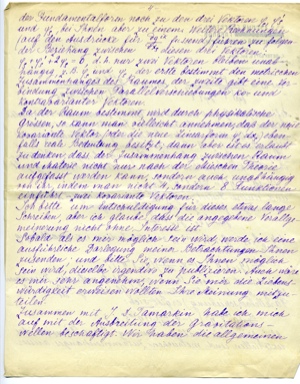 der Fundamentalform noch zu den drei Vektoren φ, φ'
und ψ, die Ihnen aber zu einem
zwei führen zu folgen
der Beziehung zwischen diesen drei Vektoren:
d.h. nur zwei Vektoren bleiben unab-
hängig z.B. φ und ψ, der erste bestimmt den metrischen
Zusammenhang des Raumes der zweite gibt eine Ver-
bindung zwischen Parallelverschiebungen ko- und
kontravarianter Vektoren.
Da der Raum bestimmt wird durch physikalische
Grössen, so kann man vielleicht annehmen, dass der neue
kovariante Vektor oder die neue Linearform eben-
falls reale Bedeutung besitzt, dann aber ist es erlaubt
zu denken dass der Zusammenhang zwischen Gravit.
und nicht nur nach der ihren Theorie
aufgefasst werden kann, sondern auch unabhängig
von ihr, indem man nicht 4, sondern 8 Funktionen
einführt, zwei kovariante Vektoren.
Ich bitte um Entschuldigung für dieses etwas lange
Schreiben, aber ich glaube, dass die angegebene Verallge-
meinerung nicht ohne Interesse ist.
Sobald es mir möglich sein wird, werde ich eine
ausführliche Darlegung meiner Betrachtungen Ihnen
zusenden, und bitte Sie, wenn es Ihnen möglich
sein wird, dieselbe irgendwo zu publizieren. Auch wäre
es mir sehr angenehm, wenn Sie mir die Liebens-
würdigkeit erweisen wollten Ihre Meinung mitzu-
teilen.
Zusammen mit J. Tamarkin habe ich mich
auch mit der Ausbreitung der Gravitations-
wellen beschäftigt. Wir haben die allgemeinen